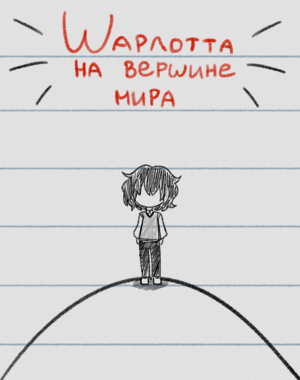 Шарлотта
на вершине
мира